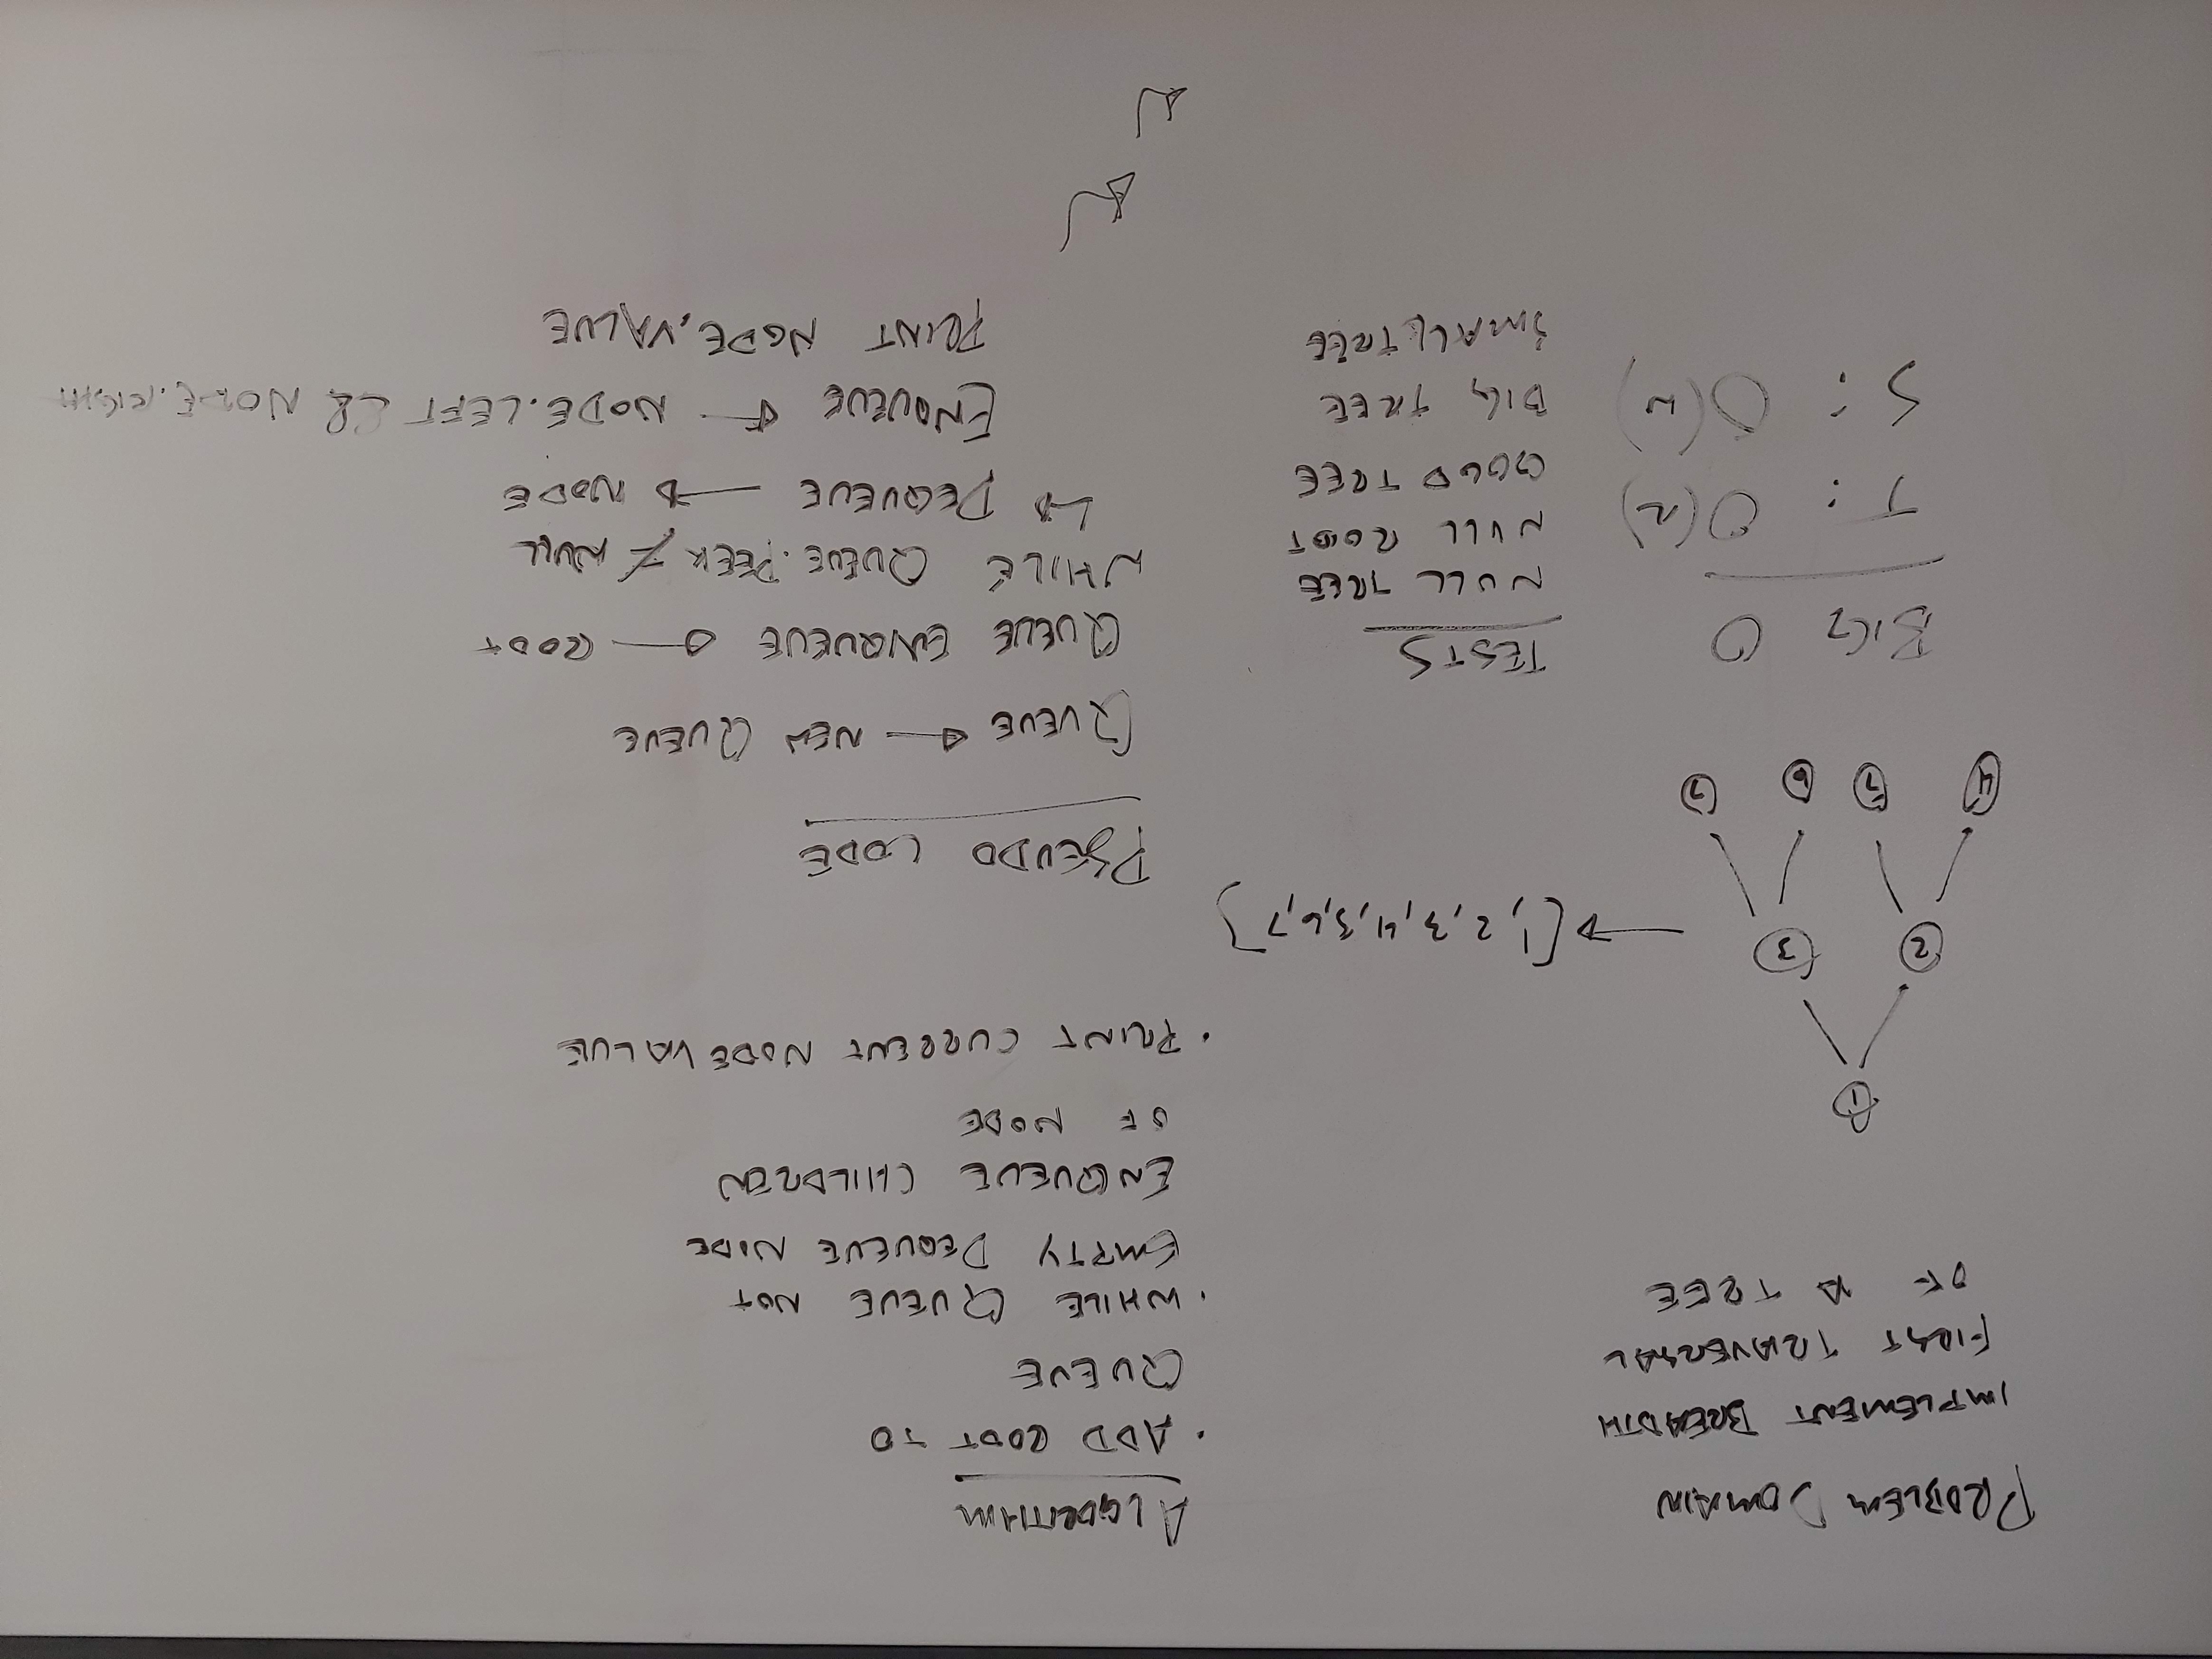 PROBLEM DOMAIN
IMPLEMENT BREADTH
FIRST TRAVERSAL
OF A TREE
1
2 3
4 5 6 7
→ [1, 2, 3, 4, 5, 6, 7]
BIG O
T: O(n)
S: O(w)
TESTS
NULL TREE
NULL ROOT
GOOD TREE
BIG TREE
SMALL TREE
ALGORITHM
· ADD ROOT TO
QUEUE
· WHILE QUEUE NOT
EMPTY DEQUEUE NODE
ENQUEUE CHILDREN
OF NODE
· PRINT CURRENT NODE VALUE
PSEUDO CODE
QUEUE ← NEW QUEUE
QUEUE ENQUEUE ← ROOT
WHILE QUEUE.PEEK ≠ NULL
↳ DEQUEUE → NODE
ENQUEUE ← NODE.LEFT && NODE.RIGHT
PRINT NODE.VALUE